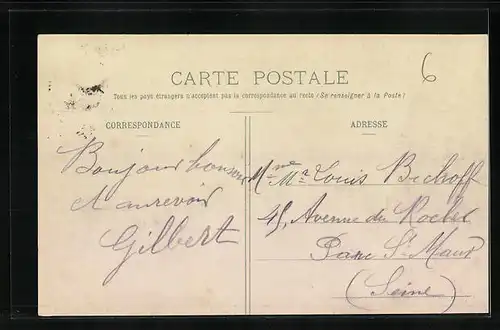 6
CARTE POSTALE
Tous les pays étrangers n'acceptent pas la correspondance au recto (Se renseigner à la Poste)
CORRESPONDANCE
ADRESSE
Bonjour bonsoir
et aurevoir
Gilbert
Mme Mr Louis Bechoff
45, Avenue du Rocher
Parc St Maur
(Seine)